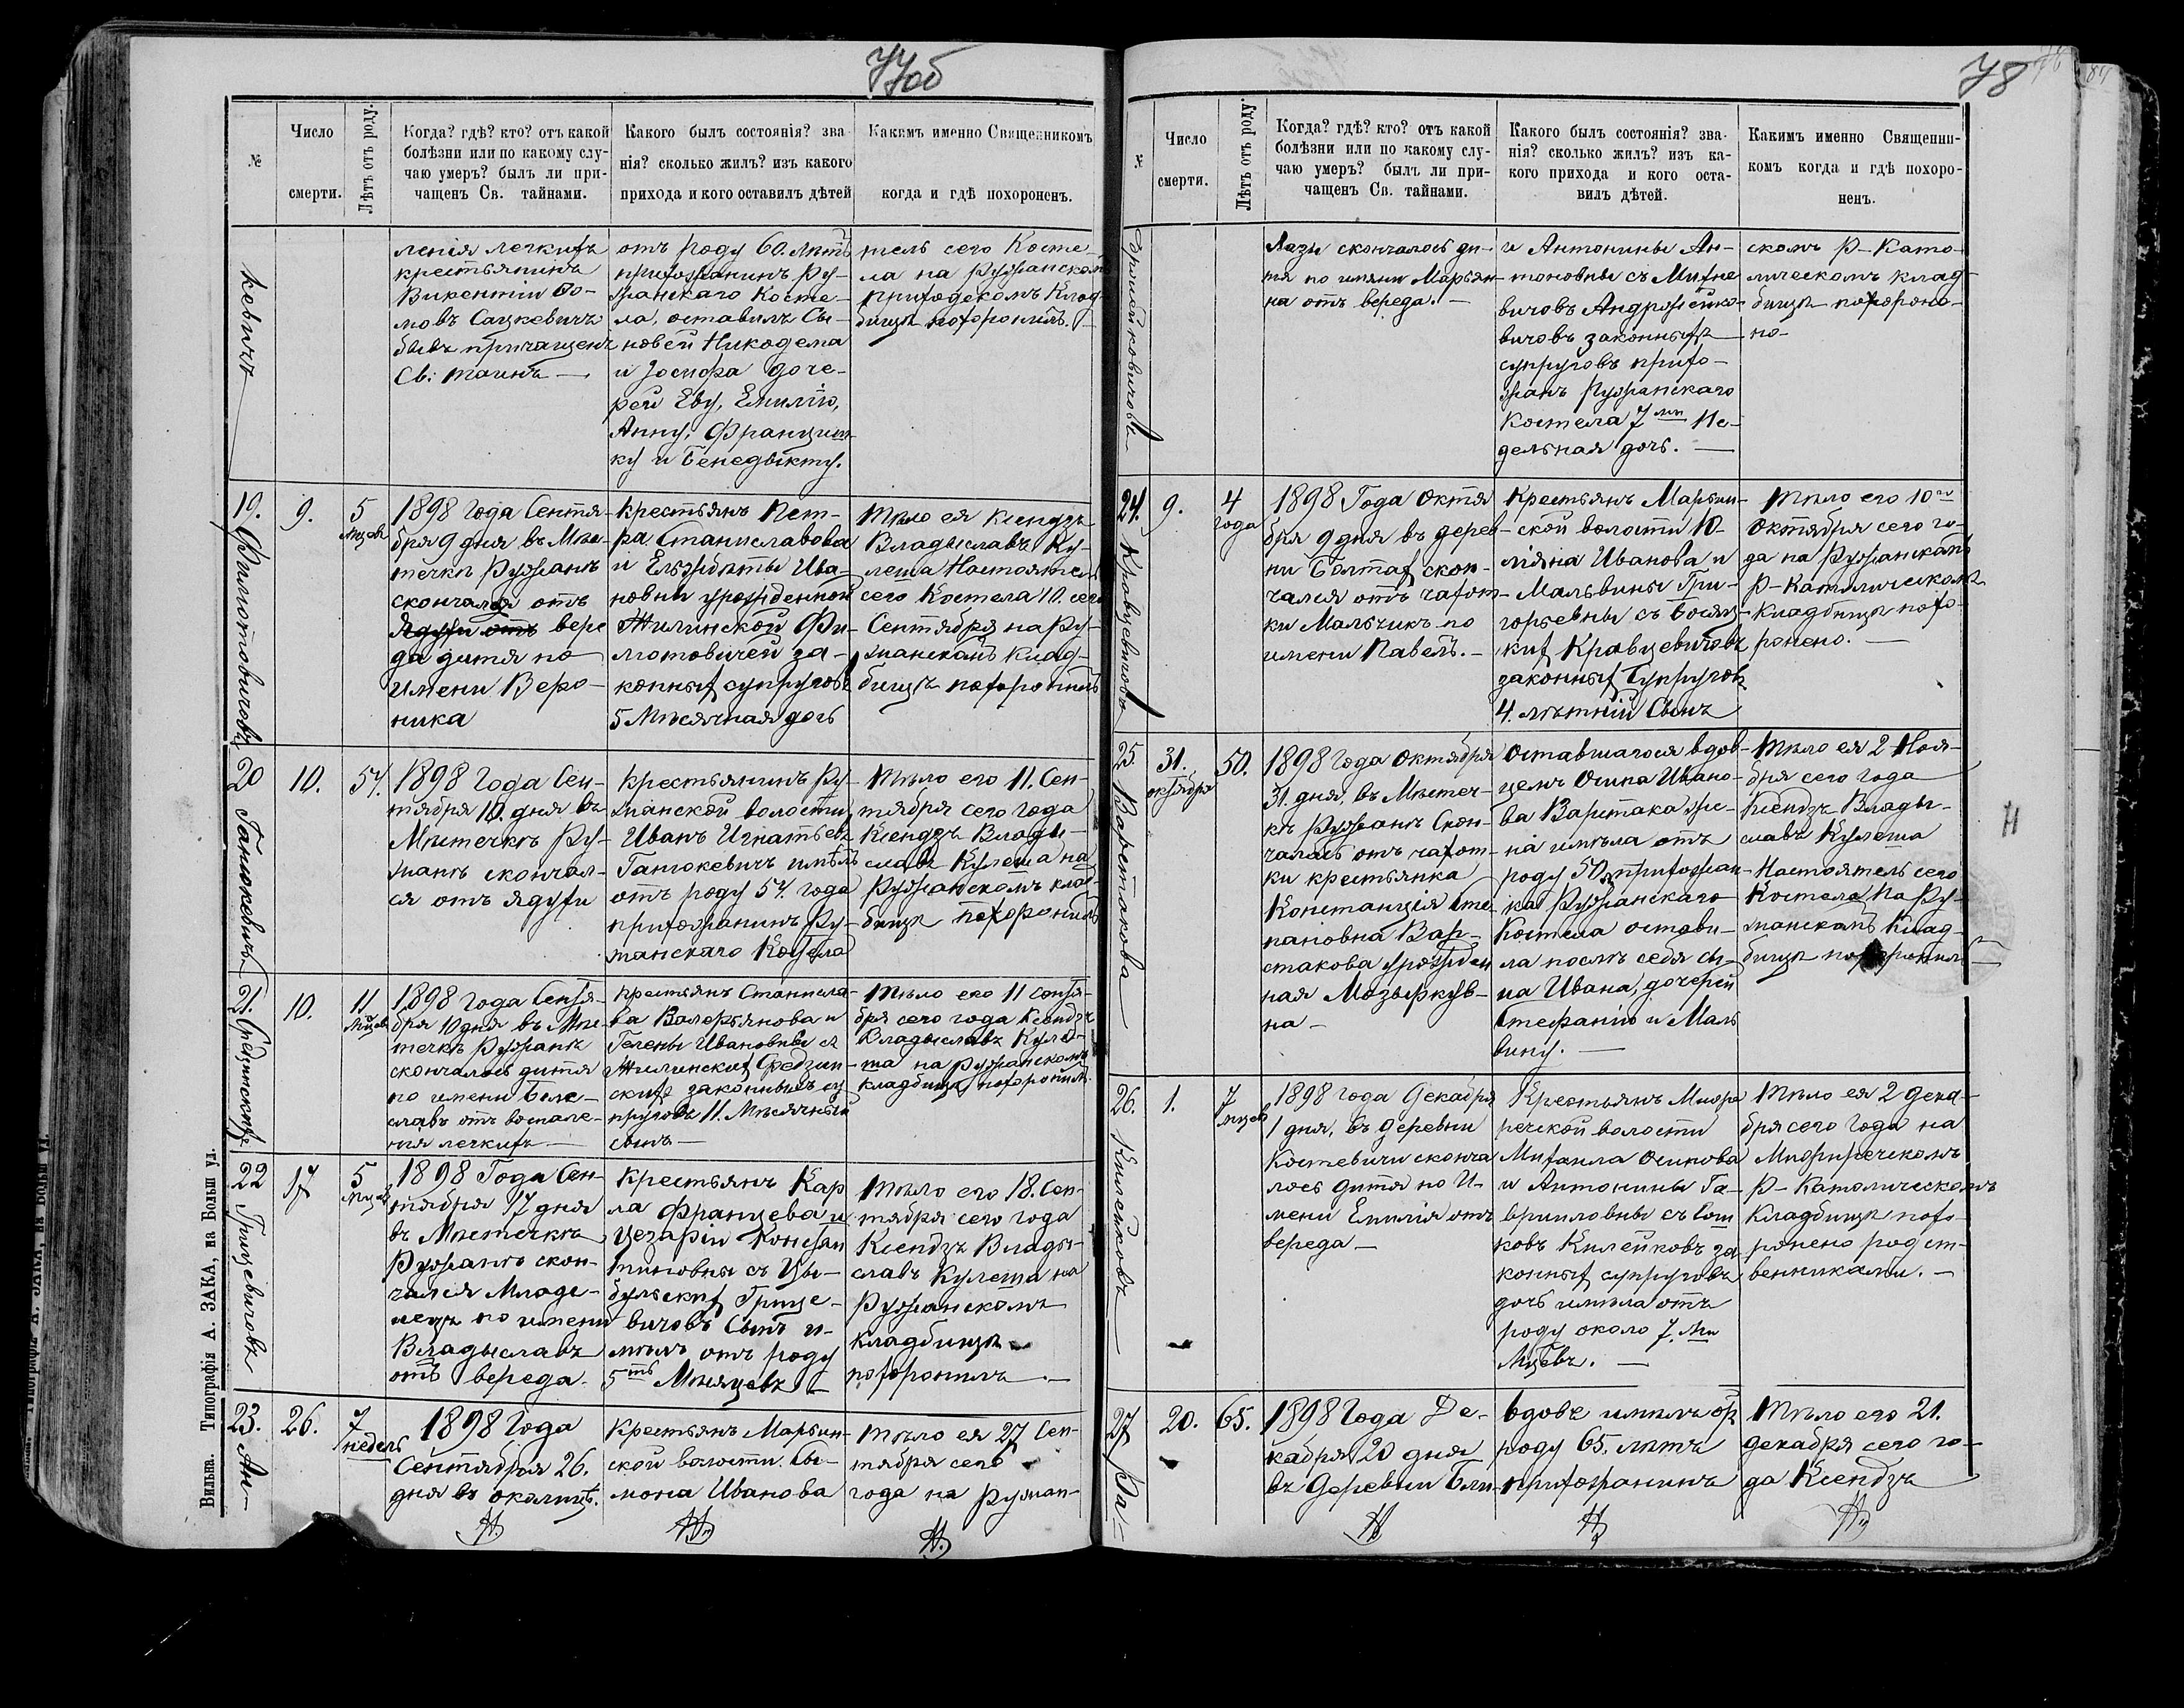 77об
№
Число
смерти.
Лѣтъ отъ роду.
Когда? гдѣ? кто? отъ какой
болѣзни или по какому слу-
чаю умеръ? былъ ли при-
чащенъ Св. тайнами.
Какого былъ состоянія? зва
нія? сколько жилъ? изъ какого
прихода и кого оставилъ дѣтей
Какимъ именно Священникомъ
когда и гдѣ похороненъ.
кевичъ
ленія легкихъ
крестьянинъ
Викентій Ѳо-
мовъ Сацкевичъ
бывъ причащенъ
Св: таинъ —
отъ роду 60. лѣтъ
прихожанинъ Ру-
жанскаго Косте-
ла, оставилъ Сы-
новей Никодема
и Іосифа доче-
рей Еву, Емилію,
Анну, Францишъ-
ку и Бенедыкту.
тель сего Косте-
ла на Ружанскомъ
приходскомъ Клад-
бищѣ похоронилъ. —
19. Филютовичовъ
9.
5
мцсов
1898 Года Сентя-
бря 9 дня въ Мѣс-
течкѣ Ружанѣ
скончался отъ
вере
да дитя по
имени Веро-
ника
Крестьянъ Пет-
ра Станиславова
и Ельжбеты Ива-
новны урожденной
Жилинской Фи-
лютовичей за-
конныхъ супруговъ
5 Мѣсячная дочь
Тѣло ея Ксендзъ
Владыславъ Ку-
леша Настоятель
сего Костела 10. сего
Сентября на Ру-
жанскомъ Клад-
бищѣ похоронилъ
20 Ганюкевичъ
10.
54.
1898 Года Сен-
тября 10. дня въ
Мѣстечкѣ Ру-
жанѣ скончал-
ся отъ ядухи
Крестьянинъ Ру-
жанской волости
Иванъ Игнатьевъ
Ганюкевичъ имѣлъ
отъ роду 54. года
прихожанинъ Ру-
жанскаго Костела
Тѣло его 11. Сен-
тября сего Года
Ксендзъ Влады-
славъ Кулеша на
Ружанскомъ клад-
бищѣ похоронилъ
21. Средзинскихъ
10.
11
Мцсев
1898 Года Сентя-
бря 10 дня въ Мѣс-
течкѣ Ружанѣ
скончалось дитя
по имени Боле-
славъ отъ воспале-
нія легкихъ —
Крестьянъ Станисла-
ва Валерьянова и
Гелены Ивановны съ
Жилинскихъ Средзин-
скихъ законныхъ су
пруговъ 11. Мѣсячный
сынъ —
Тѣло его 11 Сентя-
бря сего года Ксендзъ
Владыславъ Куле-
ша на Ружанскомъ
кладбищѣ похоронилъ.
22 Грицевичовъ
17
5
мцсев
1898 Года Сен-
тября 17 дня
въ Мѣстечкѣ
Ружанѣ скон-
чался Младе-
нецъ по имени
Владыславъ
отъ вереда.
Крестьянъ Кар
ла Францева и
Цезаріи Констан
тиновны съ Цы-
бульскихъ Грице-
вичовъ Сынъ и-
мѣлъ отъ роду
5ть Мѣсяцевъ —
Тѣло его 18. Сен-
тября сего года
Ксендзъ Влады-
славъ Кулеша на
Ружанскомъ
кладбищѣ
похоронилъ —
23. Ан-
26.
7
недель
1898 Года
Сентября 26.
дня въ околицѣ.
Крестьянъ Марьин-
ской волости. Сы-
мона Иванова
Тѣло ея 27 Сен-
тября сего
года на Ружан-
Вильна. Типографія А. ЗАКА, на Больш ул.
78
№
Число
смерти.
Лѣтъ отъ роду.
Когда? гдѣ? кто? отъ какой
болѣзни или по какому слу-
чаю умеръ? былъ ли при-
чащенъ Св. тайнами.
Какого былъ состоянія? зва-
нія? сколько жилъ? изъ ка-
кого прихода и кого оста-
вилъ дѣтей.
Какимъ именно Священни-
комъ когда и гдѣ похоро-
ненъ.
дрышейковичовъ
Лазы скончалось ди-
тя по имени Марьян-
на отъ вереда. —
и Антонины Ан-
тоновны съ Михне
вичовъ Андрушейко-
вичовъ законныхъ
супруговъ прихо-
жанъ Ружанскаго
Костела 7ми Не-
дельная дочь. —
скомъ Р-Като-
лическомъ клад-
бищѣ похороне-
но-
24. Кравцевичовъ
9.
4
года
1898 Года Октя
бря 9 дня въ дерев-
ни Болтахъ скон-
чался отъ чахот-
ки Мальчикъ по
имени Павелъ. —
Крестьянъ Марьин-
ской волости Ю-
ліяна Иванова и
Мальвины Гри-
горьевны съ Босяц-
кихъ Кравцевичовъ
законныхъ Супруговъ
4. лѣтній Сынъ
Тѣло его 10го
Октября сего го-
да на Ружанскомъ
Р-Католическомъ
Кладбищѣ похо-
ронено. —
25. Варстакова
31.
октября
50.
1898 Года Октября
31. дня, въ Мѣстеч-
кѣ Ружанѣ Скон-
чалась отъ чахот-
ки крестьянка
Констанція Сте-
пановна Вар-
стакова урожден
ная Мозыркув-
на —
Оставшагося вдов-
цемъ Осипа Ивано-
ва Варстака же-
на имѣла отъ
роду 50 прихожан-
ка Ружанскаго
Костела остави-
ла послѣ себя сы-
на Ивана, дочерей
Стефанію и Маль
вину. —
Тѣло ея 2 Ноя-
бря сего Года
Ксендзъ Влады-
славъ Кулеша
Настоятель сего
Костела на Ру-
жанскомъ Клад-
бищѣ похоронилъ —
26. Килейковъ
1.
7
мцсев
1898 года Декабря
1 дня, въ деревни
Костевичи сконча
лось дитя по И-
мени Емилія отъ
вереда —
Крестьянъ Мидзе
речской волости
Михаила Осипова
и Антонины Га-
вриловны съ Сош
ковъ Килейковъ за
конныхъ супруговъ
дочь имѣла отъ
роду около 7. ми
Мцсевъ. —
Тѣло ея 2 дека-
бря сего Года на
Мидзиречскомъ
Р-Католическомъ
Кладбищѣ похо-
ронено родст-
венниками. —
27 Ра-
20.
65.
1898 Года Де-
кабря 20 дня
въ Деревни Бли-
вдове имѣлъ отъ
роду 65. лѣтъ
прихожанинъ
Тѣло его 21.
декабря сего го-
да Ксендзъ